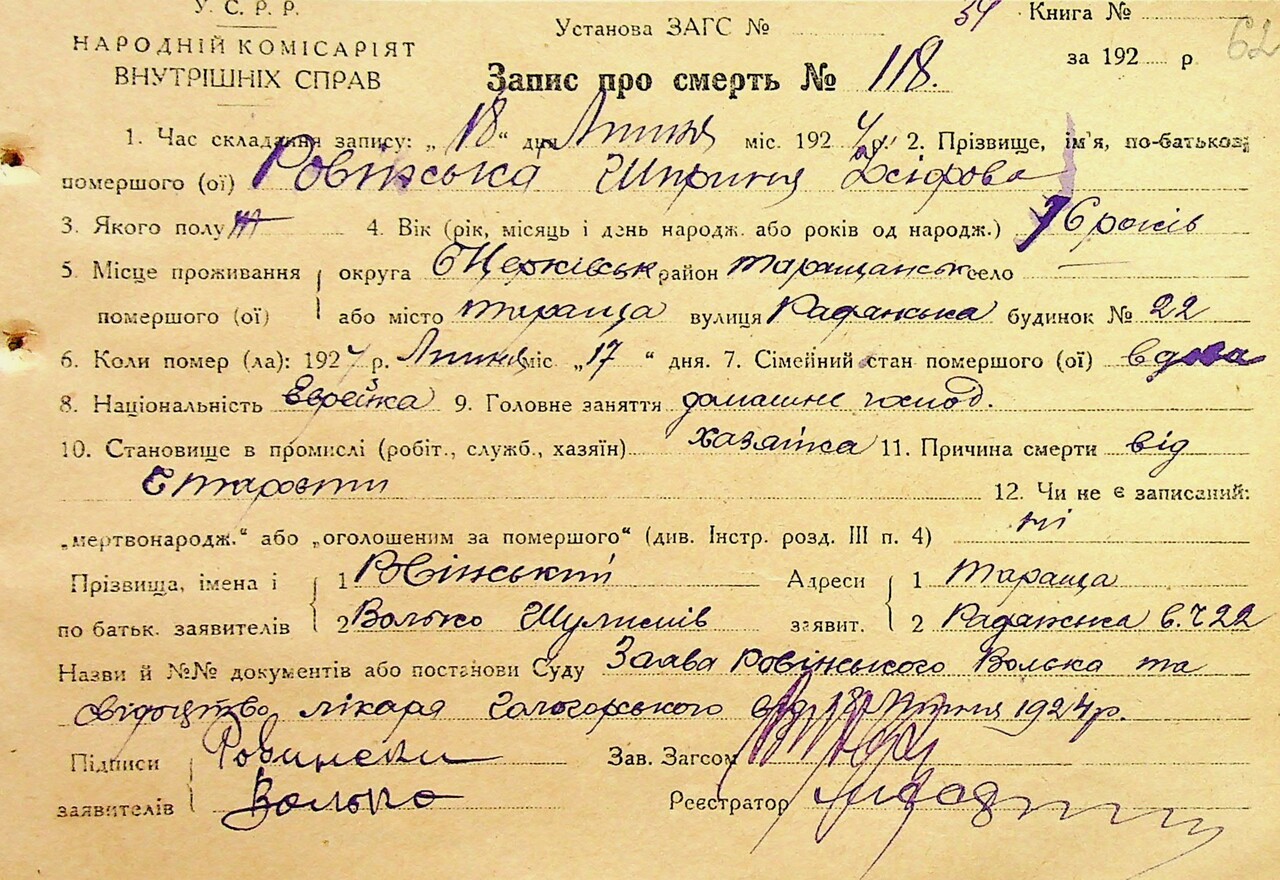 У. С. Р. Р.
НАРОДНІЙ КОМІСАРІЯТ
ВНУТРІШНІХ СПРАВ
Установа ЗАГС №
Книга №
за 192 р
62
Запис про смерть № 118.
1. Час складання запису: „18“ дня Липня міс. 1924 р. 2. Прізвище, ім'я, по-батькові
помершого (ої) Ровінська Шпринця
3. Якого полу ж 4. Вік (рік, місяць і день народж. або років од народж.) 76 років
5. Місце проживання округа БЦерківськ район таращанськ село
помершого (ої) або місто тараща вулиця Радянська будинок № 22
6. Коли помер (ла): 1924 р. Липня міс „17“ дня. 7. Сімейний стан помершого (ої) вдова
8. Національність Еврейка 9. Головне заняття домашнє господ.
10. Становище в промислі (робіт., служб., хазяїн) хазяйка 11. Причина смерти від
Старости 12. Чи не є записаний:
„мертвонародж.“ або „оголошеним за помершого“ (див. Інстр. розд. III п. 4) ні
Прізвища, імена і 1 Ровінський Адреси 1 Тараща
по батьк. заявителів 2 Волько Шулимів заявит. 2 Радянська б.ч 22
Назви й №№ документів або постанови Суду Заява Ровінського Волька та
свідоцтво лікаря Гологорського від 18 Липня 1924 р.
Підписи Ровински Зав. Загсом
заявителів Волько Реєстратор